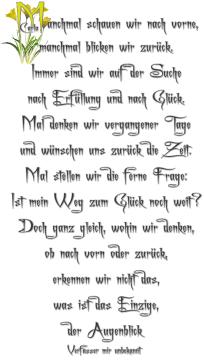 Carla
Manchmal schauen wir nach vorne,
manchmal blicken wir zurück.
Immer sind wir auf der Suche
nach Erfüllung und nach Glück.
Mal denken wir vergangener Tage
und wünschen uns zurück die Zeit.
Mal stellen wir die ferne Frage:
Ist mein Weg zum Glück noch weit?
Doch ganz gleich, wohin wir denken,
ob nach vorn oder zurück,
erkennen wir nicht das,
was ist das Einzige,
der Augenblick
Verfasser mir unbekannt